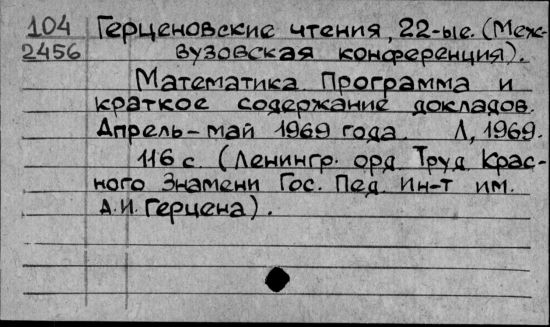 104 Герценовские чтения, 22-ые. (Меж-
2456 вузовская конференция).
Математика. Программа и
краткое содержание докладов.
Апрель-май 1969 года. Л, 1969.
116 с. (Ленингр. орд. Труд. Крас-
ного Знамени Гос. Пед. Ин-т им.
А.И. Герцена).